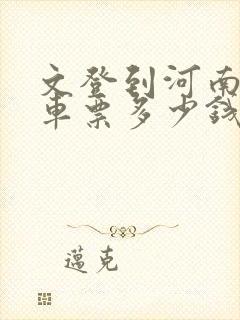 文登到河南
车票多少钱
邁克